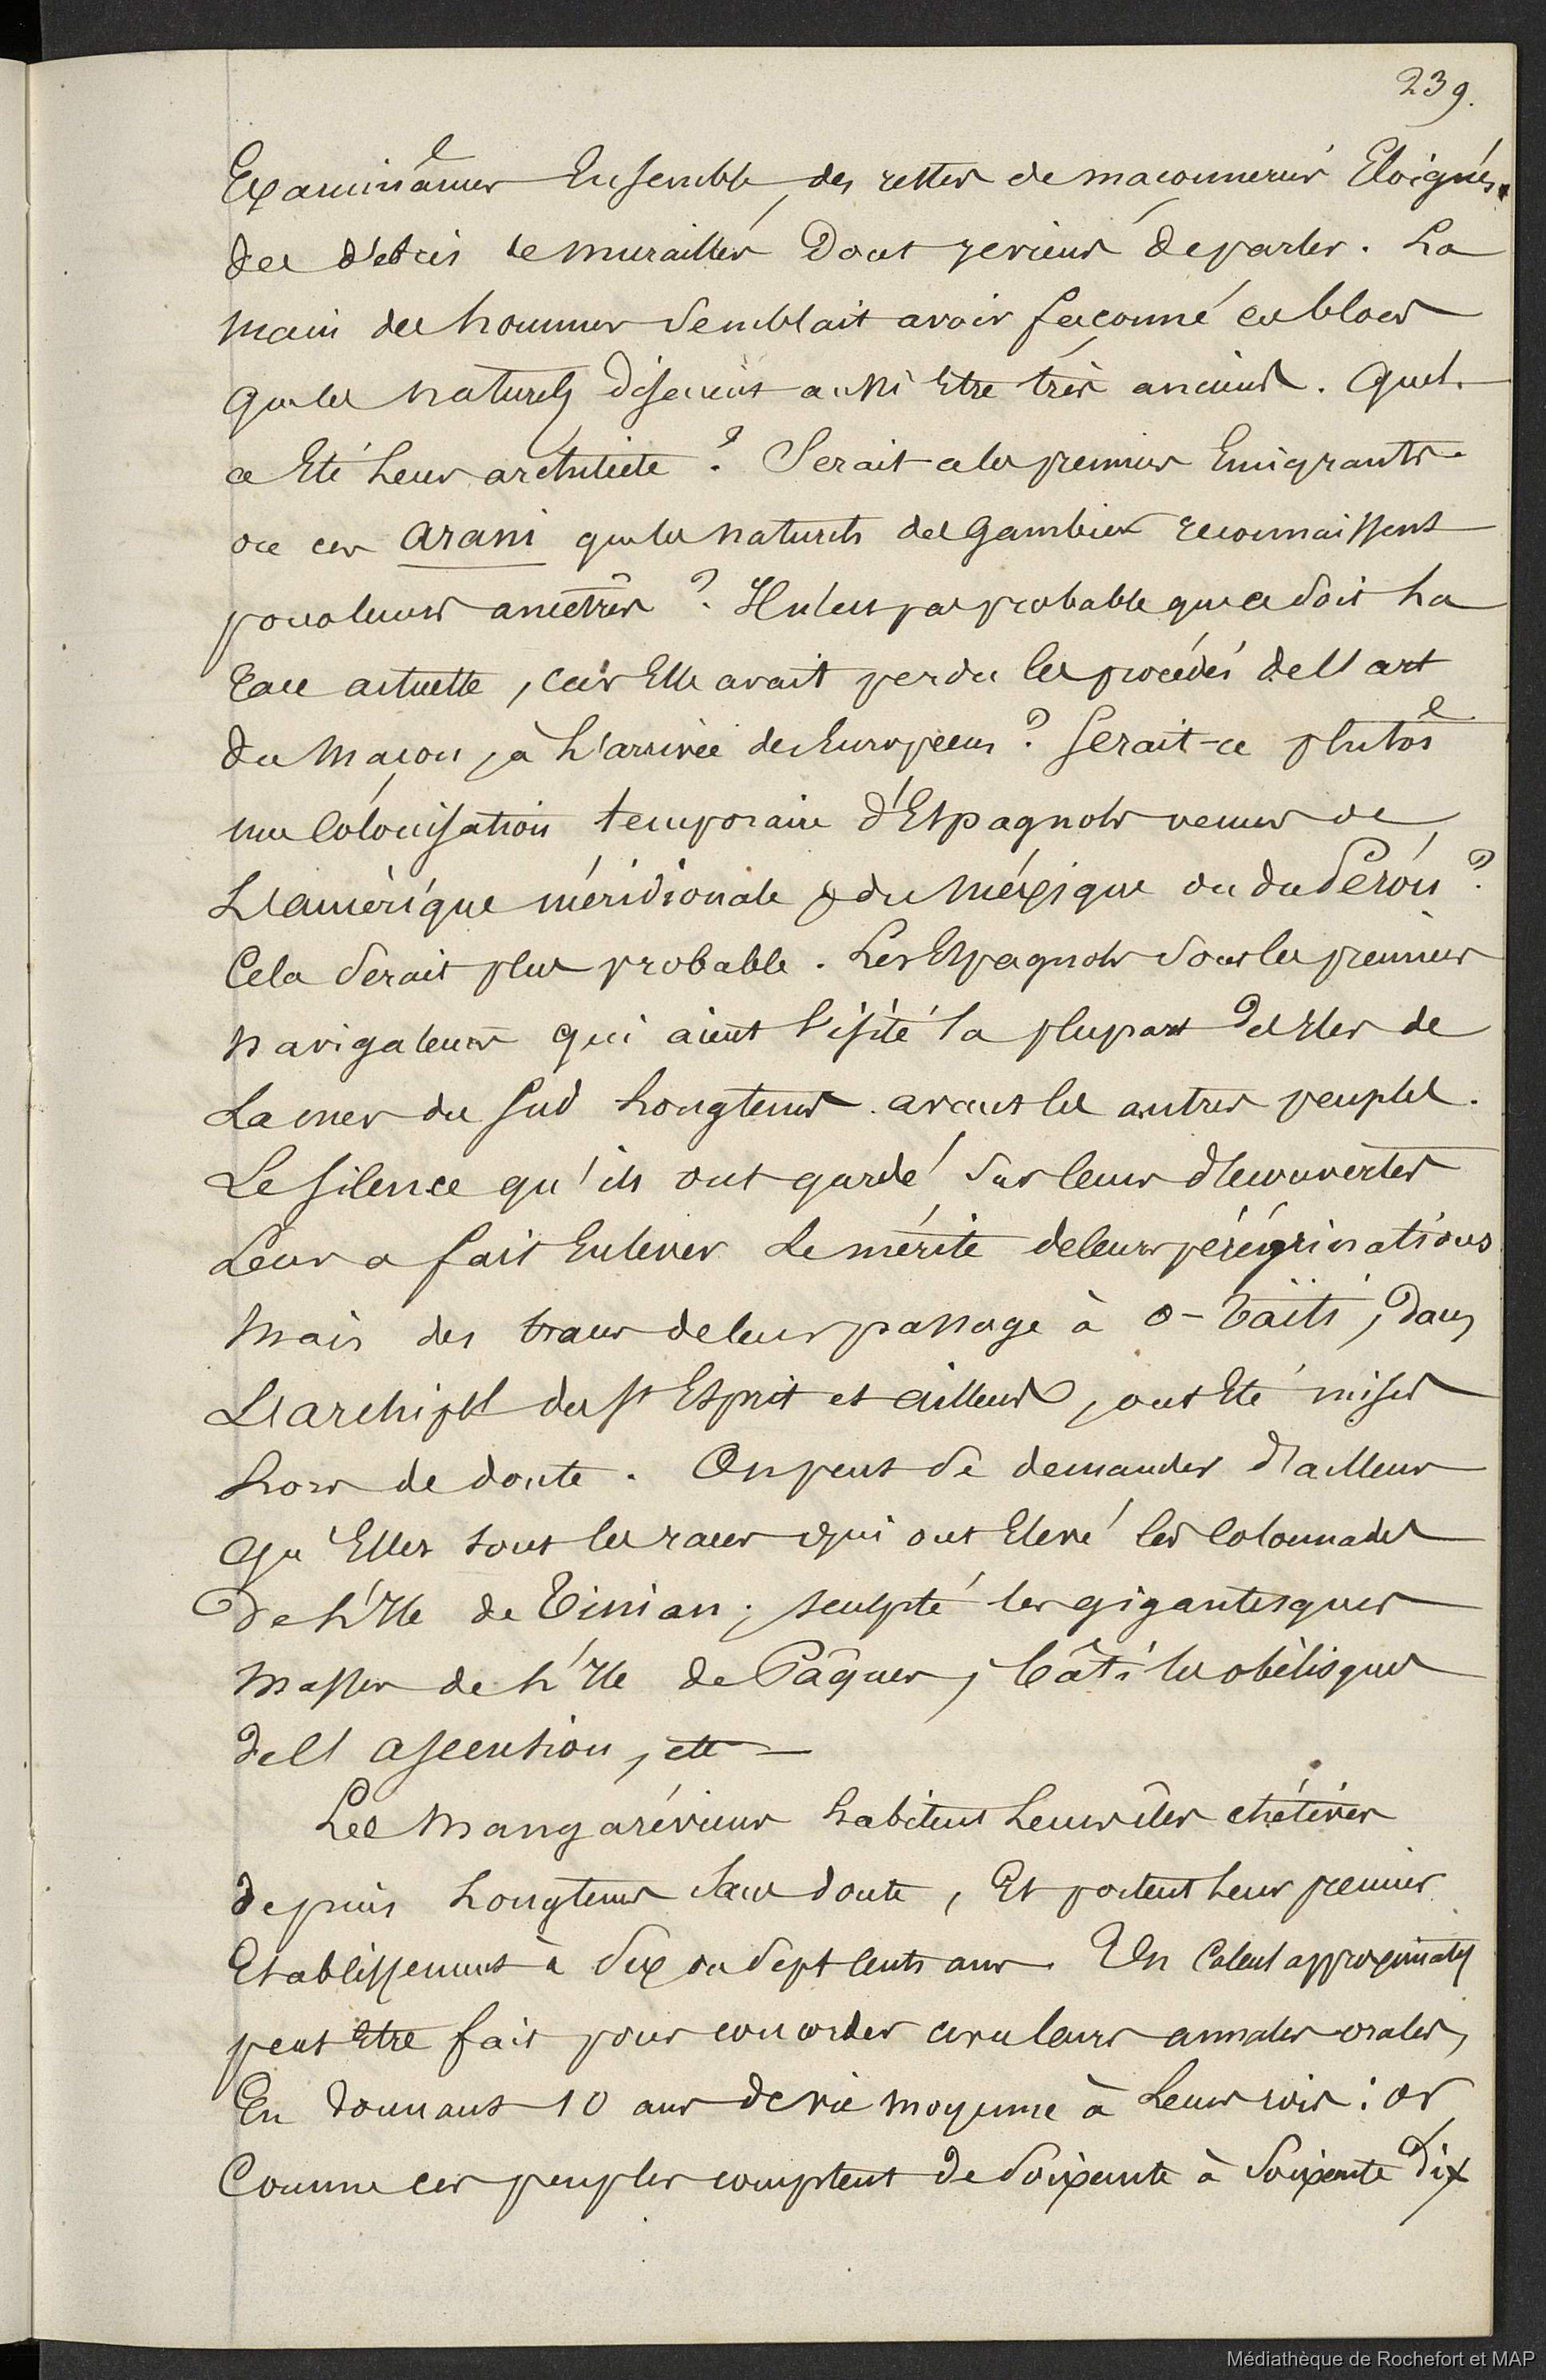 239.
Examinâmes Ensemble, des restes de maçonneries Eloignés
des débris de murailles Dont je viens de parler. La
main des hommes semblait avoir façonné ces blocs
que les naturels disaient aussi Etre très anciens. Quel
a Eté leur architecte ? Serait-ce les premiers Emigrants
ou ces arani que les naturels des Gambier reconnaissent
pour leurs ancêtres ? Il n'est pas probable que ce soit la
race actuelle, car Elle avait perdu les procédés de l'art
du maçon, à l'arrivée des Européens ? Serait-ce plutôt
une Colonisation temporaire d'Espagnols venus de
L'amérique méridionale, du Méxique ou du Pérou ?
Cela serait plus probable. Les Espagnols sont les premiers
navigateurs qui aient visité la plupart des Iles de
La mer du Sud Longtems avant les autres peuples.
Le silence qu'ils ont gardé sur leurs découvertes
Leur a fait Enlever Le mérite de leurs pérégrinations
mais des traces de leur passage à O-taïti, dans
L'archipel du St Esprit et ailleurs, ont Eté mises
hors de doute. On peut se demander d'ailleurs
qu'Elles sont les races qui ont Elevé les Colonnades
De l'Ile de Tinian ; sculpté les gigantesques
masses de l'Ile de Pâques, bâti les obélisques
de l'ascension, etc —
Les Mangaréviens habitent leurs îles chétives
depuis Longtems sans doute, Et portent leur premier
Etablissement à six ou sept cents ans. Un Calcul approximatif
peut Etre fait pour concorder avec leurs annales orales,
En donnant 10 ans de vie moyenne à Leurs rois : or
Comme ces peuples comptent de Soixante à Soixante Dix
Médiathèque de Rochefort et MAP